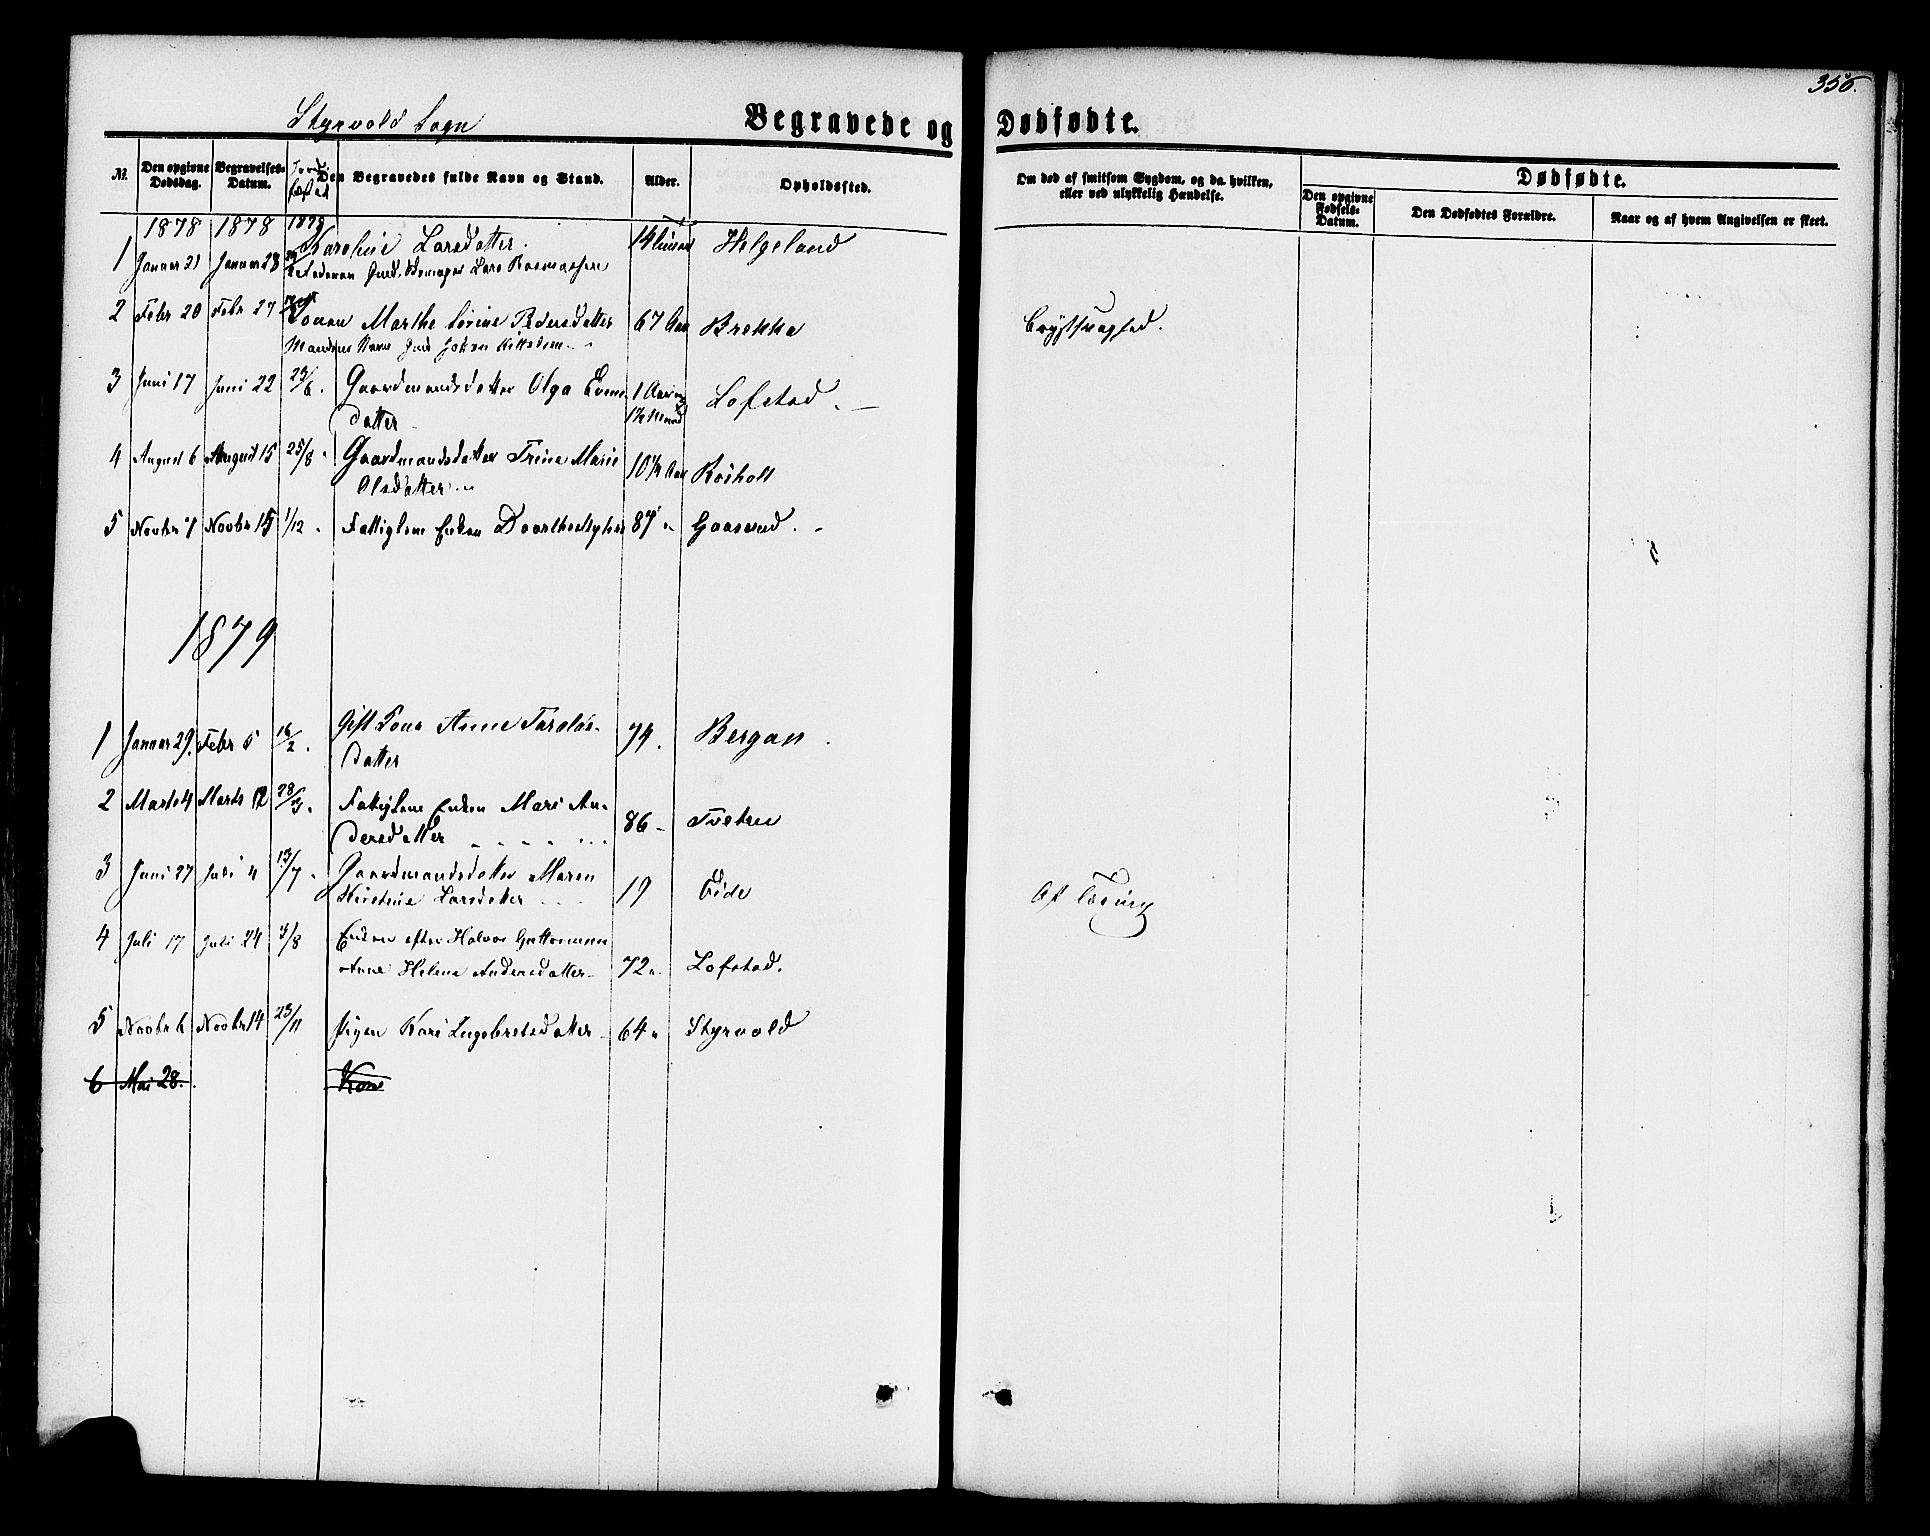 356.
Styrvold Sogn
Begravede og Dødfødte.
No.
Den opgivne Dødsdag.
Begravelses-Datum.
Jordfæstet
Den Begravedes fulde Navn og Stand.
Alder.
Opholdssted.
Om død af smitsom Sygdom, og da hvilken, eller ved ulykkelig Hændelse.
Dødfødte.
Den opgivne Fødsels-Datum.
Den Dødfødtes Forældre.
Naar og af hvem Angivelsen er skeet.
1878 1878 1878
1 Januar 21 Januar 28 Karoline Larsdatter. Helgeland
Lars Rasmussen
2 Febr 20 Febr 27 Konen Marthe Sørine Pedersdatter 67 Aar Brekka Brystsvaghed.
Mandens Navn
3 Juni 17 Juni 22 23/6. Gaardmandsdatter Olga Evens- 1 Aar og Lofstad.
datter
4 August 6 August 15 25/8 Gaardmandsdatter Trine Marie 10 1/2 Aar Røsholt
Olsdatter
5 Novbr 7 Novbr 15 1/12 Fattiglem Enken 87 " Gaaserud.
1879
1 Januar 29. Febr 5 16/2. Gift Kone Anne Taralds- 74. Bergan.
datter
2 Marts 4 Marts 12 Fattiglem Enken Mari An- 86 Tveten
dersdatter
3 Juni 27 Juli 4 13/7 Gaardmandsdatter Maren 19 Eide Af Tæring
Kirstine Larsdatter
4 Juli 17 Juli 24 3/8 Enken efter Halvor Guttormsen
Anne Helene Andersdatter 72 " Lofstad.
5 Novbr 6 Novbr 14 23/11 Pigen Kari Ingebretsdatter 64 " Styrvold
6 Mai 28. Kone